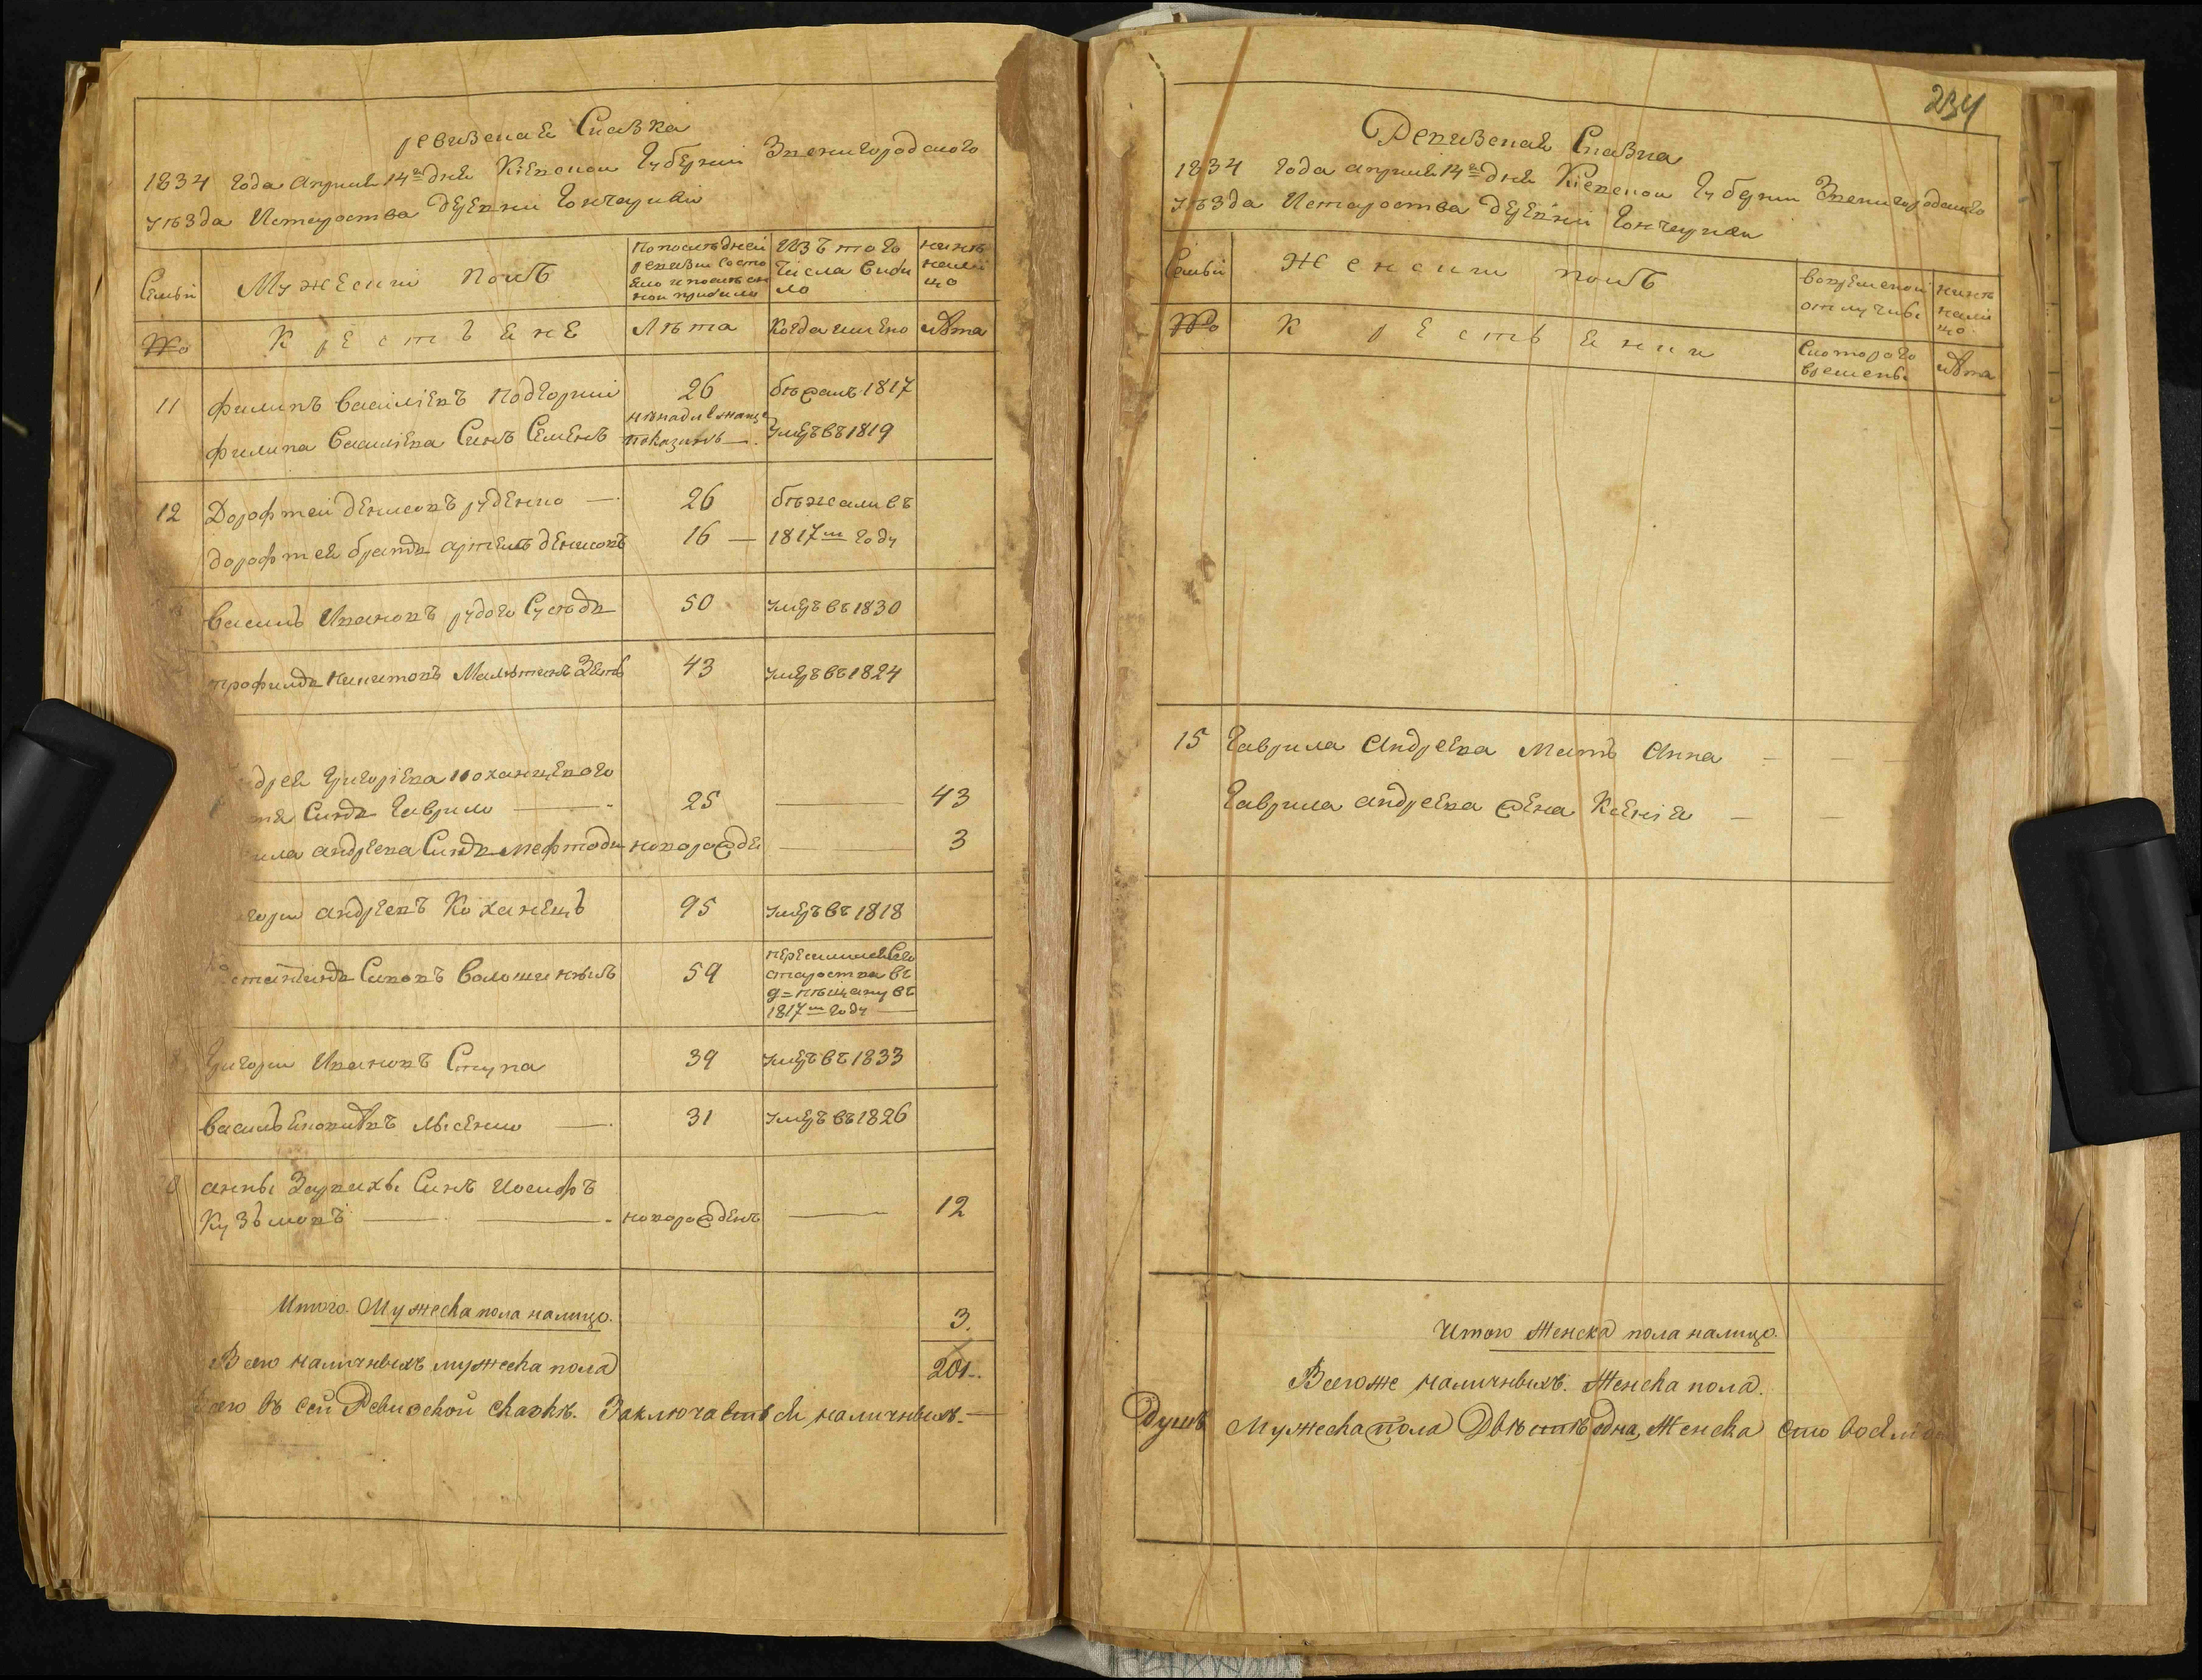 ревизская Сказка
1834 года априля 14го дня Кіевской Губерніи Звенигородского
уѣзда Истароства деревни Гончарихи
Семьи
Мужескій полъ
По последней
ревизіи состо
яло и послѣ он
ной прибыло
Изъ того
числа выбы
ло
нынѣ
нали
цо
№
Крестьяне
Лѣта
Когда имено
лѣта
11 филипъ василіевъ Подгорній 26 бѣжалъ 1817
филипа василіева Сынъ Семенъ показанъ — умеръ въ 1819
12 Дорофтей денисовъ руденко — 26 бѣжали въ
дорофтея братъ артемъ денисовъ 16 — 1817м году
василь Ивановъ рудого Сусѣдъ 50 умеръ въ 1830
трофимъ никитовъ зять 43 умеръ въ 1824
дрея григоріева коханецкого
Сынъ гаврило — 25 — 43
ила андреева Сынъ мефтоди новорожде — 3
гори андреевъ Коханецъ 95 умеръ въ 1818
стантинъ Савовъ волошинъ 59
староства въ
д= пѣщану въ
1817м году —
григори Ивановъ Ступа 39 умеръ въ 1833
василь лысенко — 31 умеръ въ 1826
анны Сынъ иосифъ
Кузьмовъ — — новорожденъ — 12
Итого Мужеска пола налицо. 3.
Всего наличныхъ мужеска пола 201.
его въ сей Ревизской сказкѣ. Заключается наличныхъ. —
234
Ревизская Сказка
1834 года априля 14го дня Кіевской Губерніи Звенигородского
уѣзда Истароства деревни Гончарихи
Семьи
Женскій полъ
во временой
отлучкѣ
нынѣ
нали
цо
№
Крестьянки
Скоторого
времены
лѣта
15 гаврила андреева Мать Анна — — —
гаврила андреева жена Ксенія — —
Итого Женска пола налицо.
Всегоже наличныхъ. Женска пола.
Душъ Мужеска пола Двѣстѣ одна, Женска сто